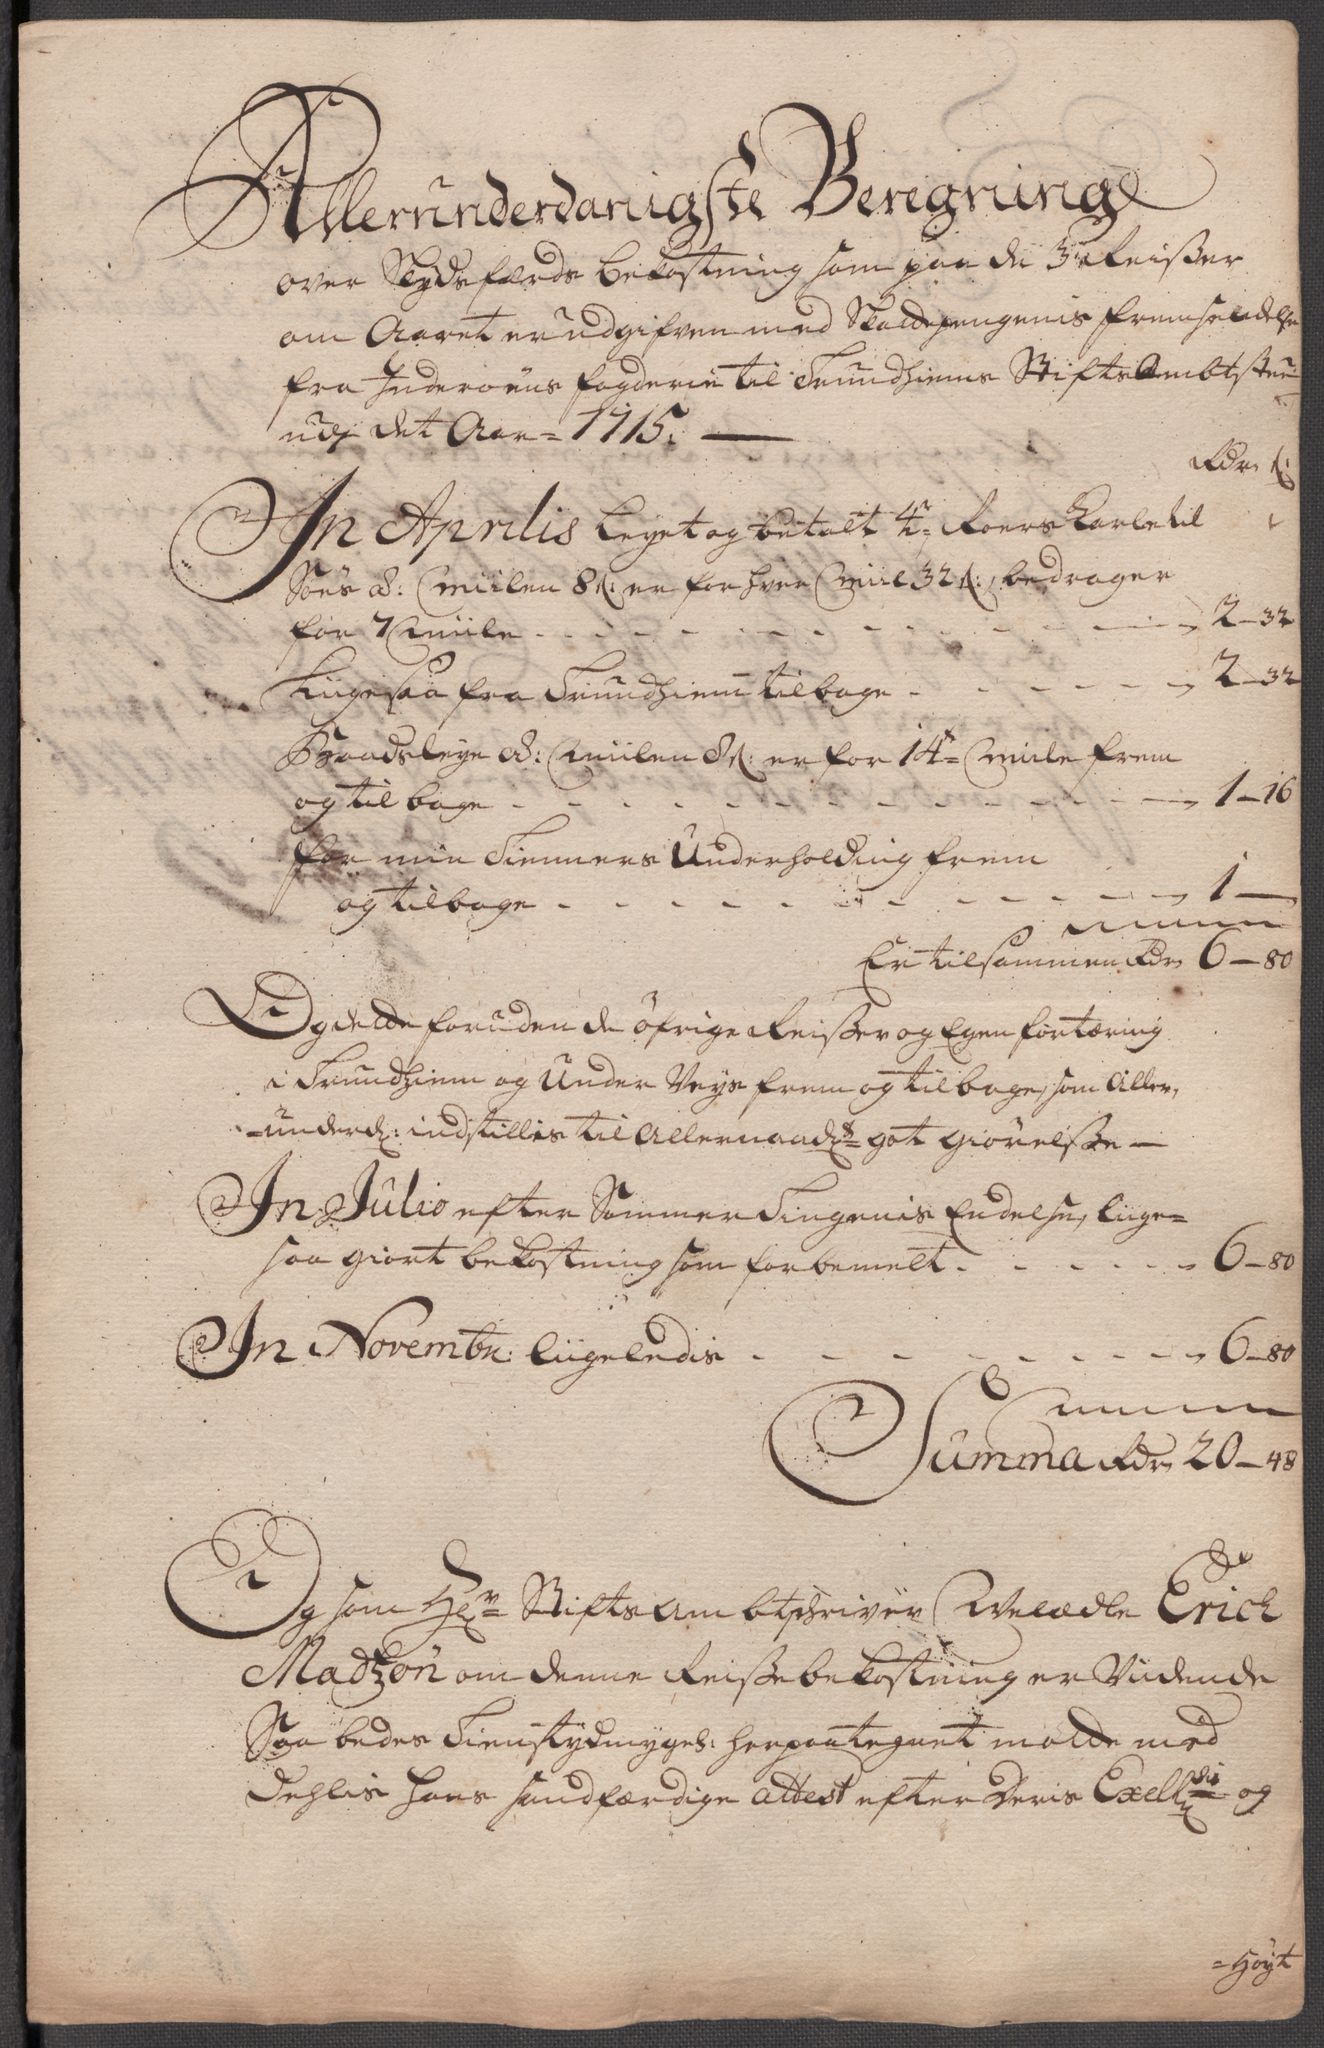 Allerunderdanigste Beregning
over Skydsfærds bekostning som paa de 3de Reisser
om Aaret er udgifven med Skattepengenis fremsendelse
fra Inderøens fogderie til Trundhiems StiftsAmbtstue
udj det Aar= 1715.
Rdr ß:
In Aprilis Leyet og betalt 4r= Roers Karle til
Søes á: Miilen 8ß: er for hver Miil 32ß:, bedrager
for 7 Miile 2-32
Liigesaa fra Trundhiem tilbage 2-32
Baadsleye á: Miilen 8ß: er for 14= Miile frem
og tilbage 1-16
for min Tienners Underholding frem
og tilbage 1-
Er tilsammen Rdr 6-80
Og dette foruden de øfrige Reisser og Egen fortæring
i Trundhiem og Under Veys frem og tilbage, som Aller,
-underd: indstillis til Allernaadst= got giørelsse-
In Julio efter Sommer Tingenis Endelse, liige=
saa giort bekostning som forbemelt 6-80
In Novembr: liigeledis 6-80
Summa Rdr 20-48
Og som Hr= StiftsAmbtschriver Welædle Erich
Madtzøn om denne Reisse bekostning er Viidende
Saa bedes Tienstydmygst: herpaategnet motte med
dehlis hans sandfærdige attest efter Deris Excell: og
=Høyt